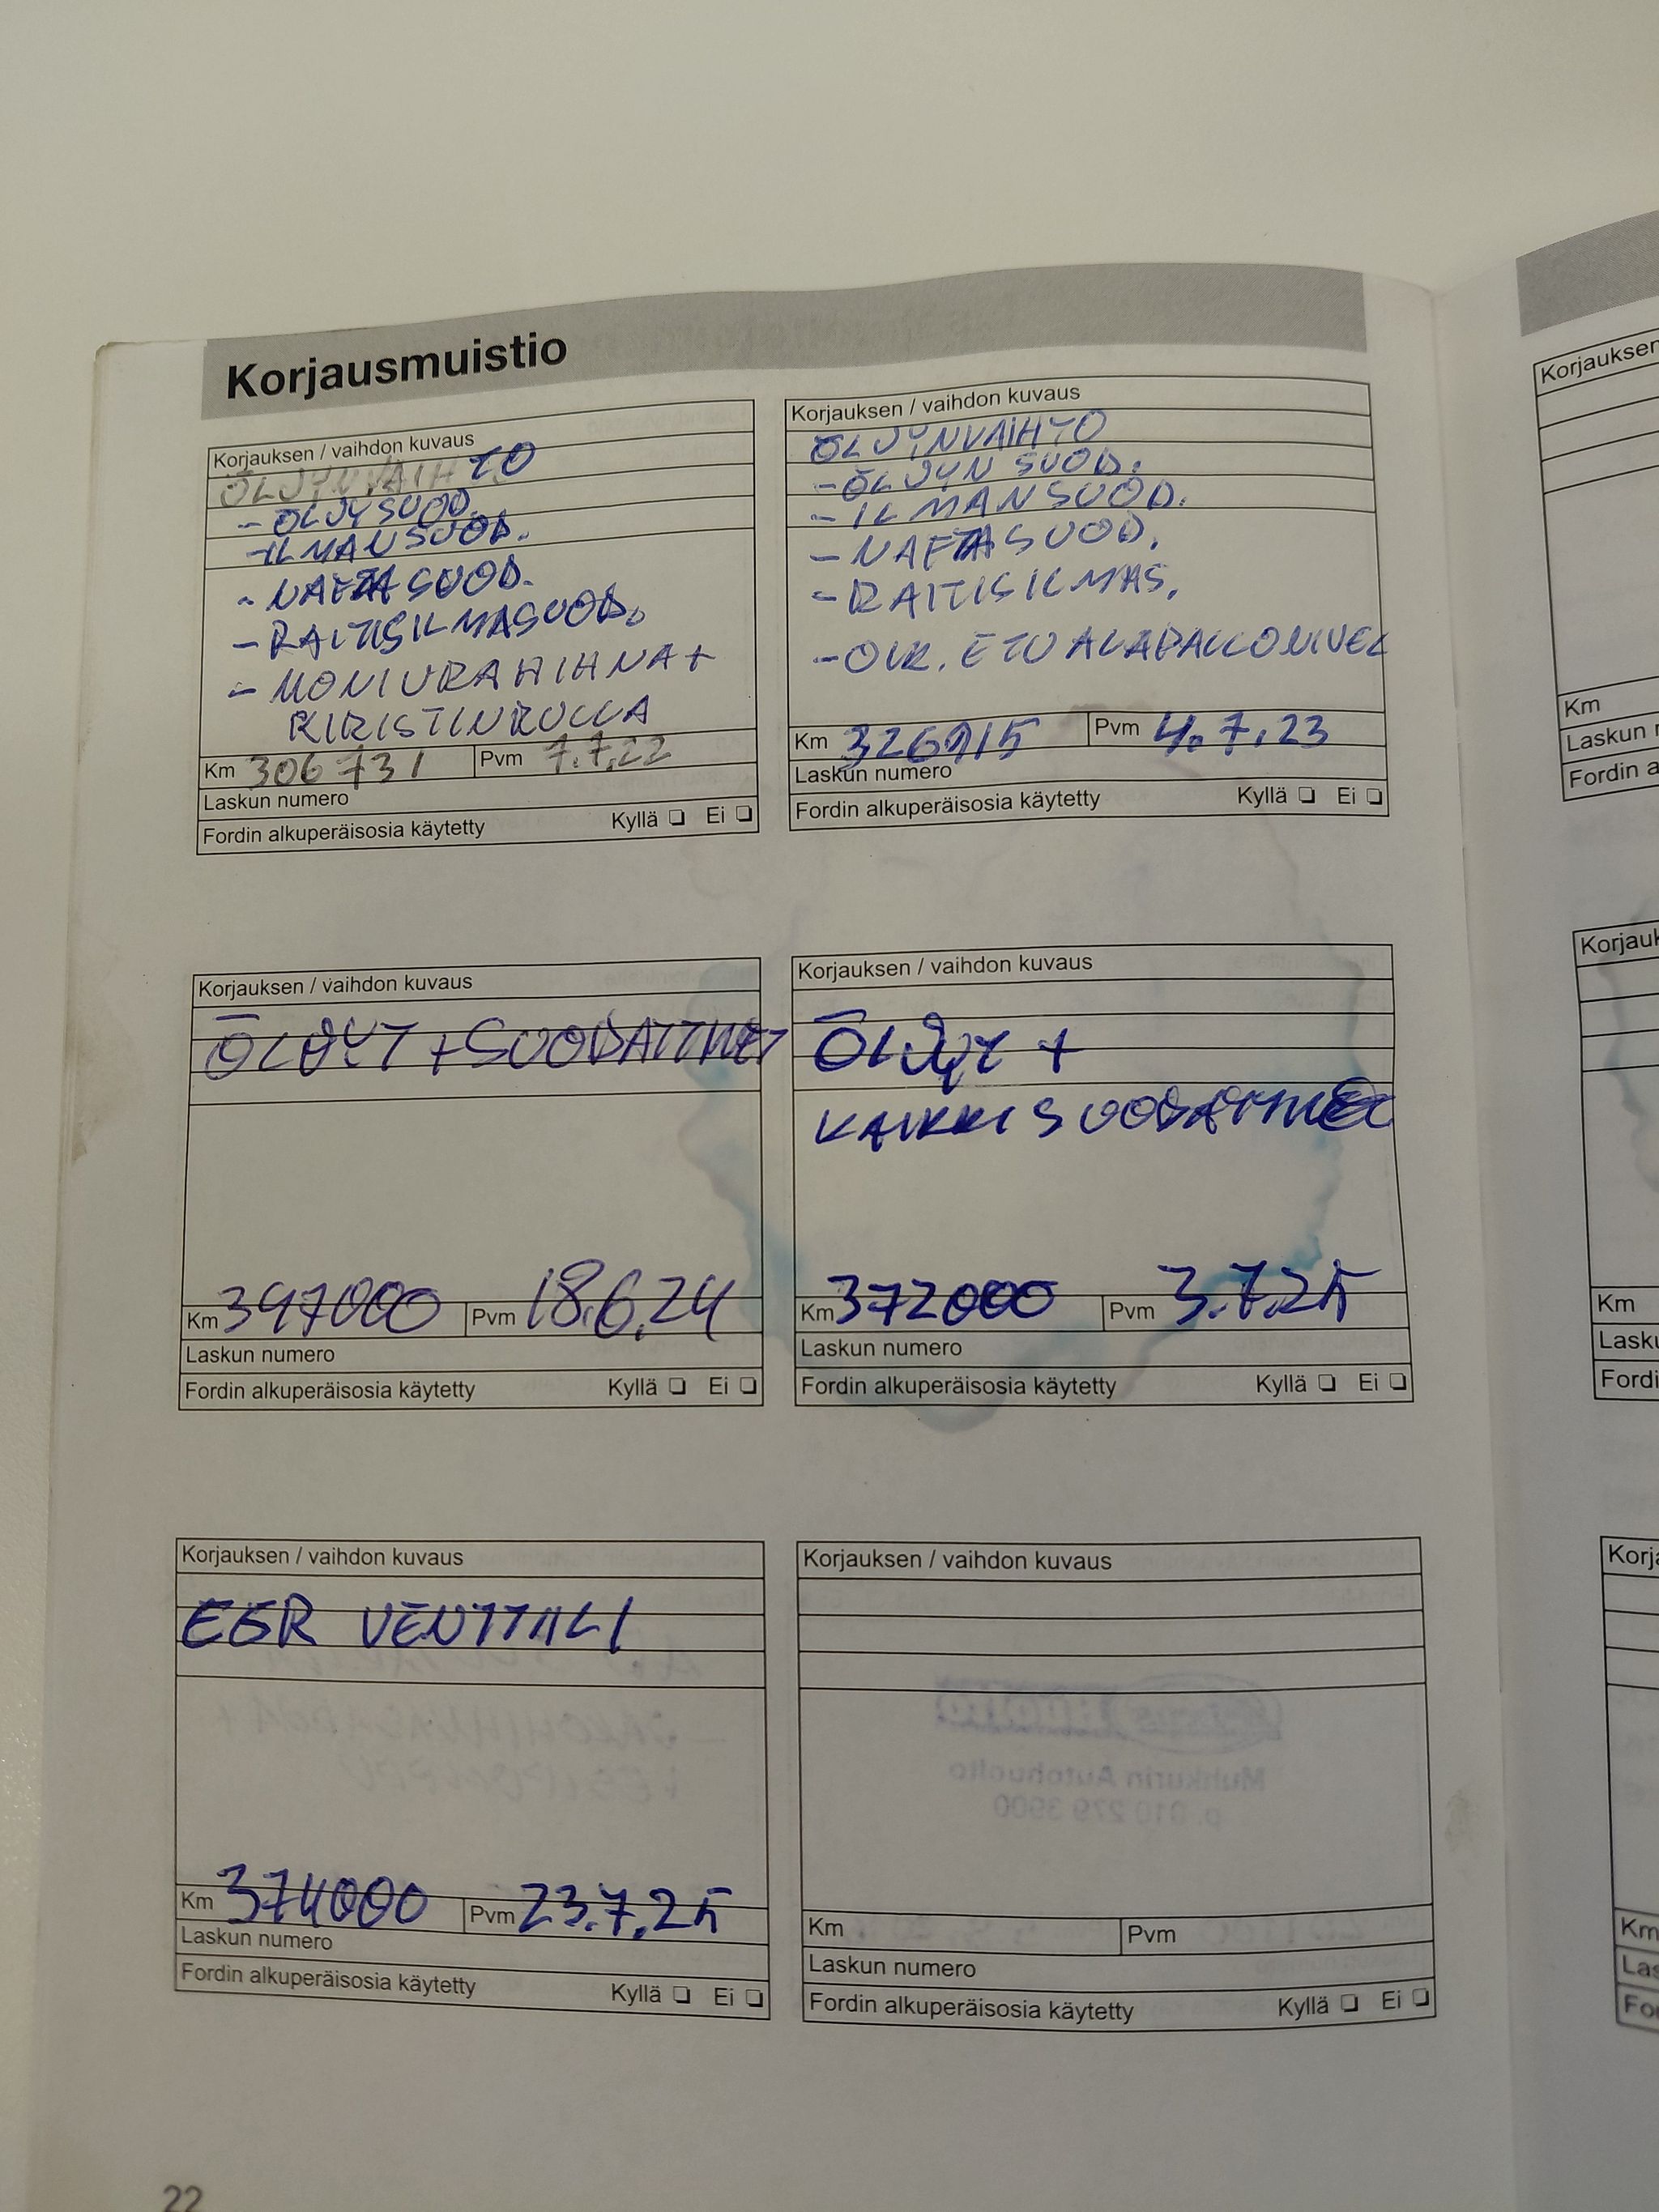 Korjausmuistio
Korjauksen / vaihdon kuvaus
ÖLJYNVAIHTO
- ÖLJYSUOD.
- ILMANSUOD.
- NAFTASUOD.
- RAITISILMASUOD.
- MONIURAHIHNA +
KIRISTINRULLA
Km 306731 Pvm 7.7.22
Laskun numero
Fordin alkuperäisosia käytetty Kyllä ❏ Ei ❏
Korjauksen / vaihdon kuvaus
ÖLJYNVAIHTO
- ÖLJYN SUOD.
- ILMANSUOD.
- NAFTASUOD.
- RAITISILMAS.
- OIK. ETU ALAPALLONIVEL
Km 326915 Pvm 4.7.23
Laskun numero
Fordin alkuperäisosia käytetty Kyllä ❏ Ei ❏
Korjauksen / vaihdon kuvaus
ÖLJYT + SUODATTIMET
Km 347000 Pvm 18.6.24
Laskun numero
Fordin alkuperäisosia käytetty Kyllä ❏ Ei ❏
Korjauksen / vaihdon kuvaus
ÖLJYT +
KAIKKI SUODATTIMET
Km 372000 Pvm 3.7.25
Laskun numero
Fordin alkuperäisosia käytetty Kyllä ❏ Ei ❏
Korjauksen / vaihdon kuvaus
EGR VENTTIILI
Km 374000 Pvm 23.7.25
Laskun numero
Fordin alkuperäisosia käytetty Kyllä ❏ Ei ❏
Korjauksen / vaihdon kuvaus
Km Pvm
Laskun numero
Fordin alkuperäisosia käytetty Kyllä ❏ Ei ❏
22
Korjauksen
Km
Laskun
Fordin
Km